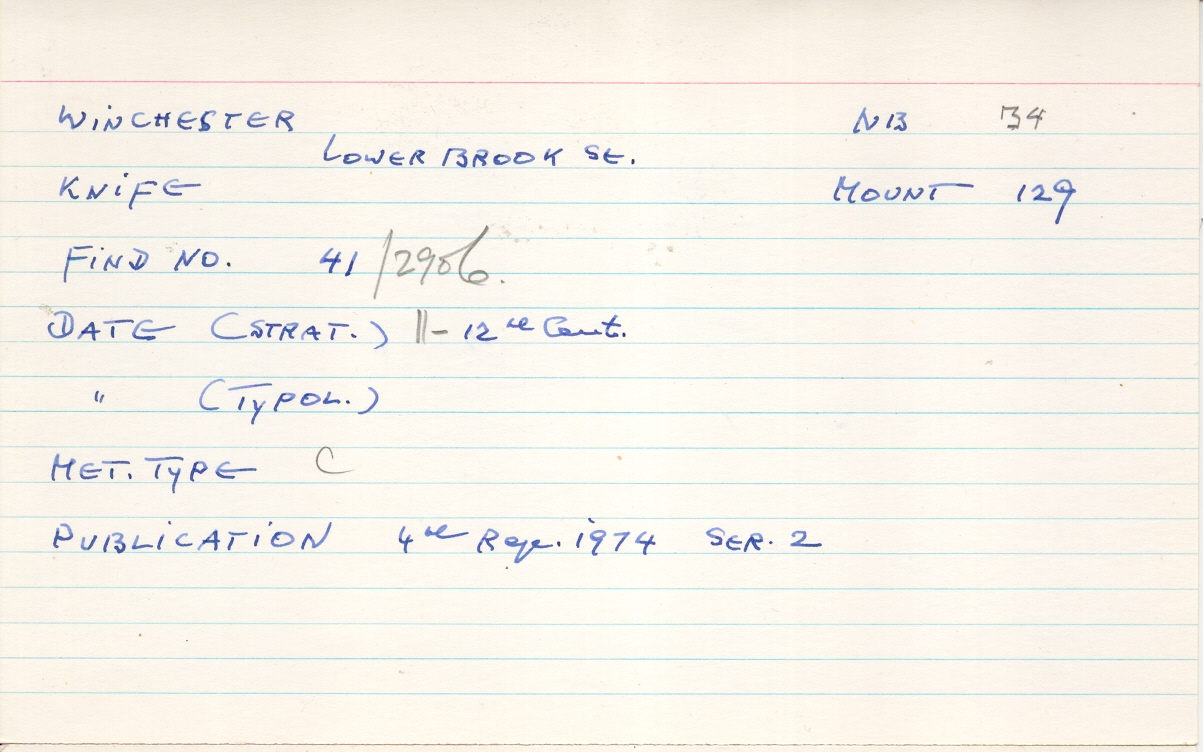 WINCHESTER NB 34
LOWER BROOK ST.
KNIFE MOUNT 129
FIND NO. 41/2906.
DATE (STRAT.) 11-12th Cent.
" (TYPOL.)
MET. TYPE C
PUBLICATION 4th Rep. 1974 SER. 2